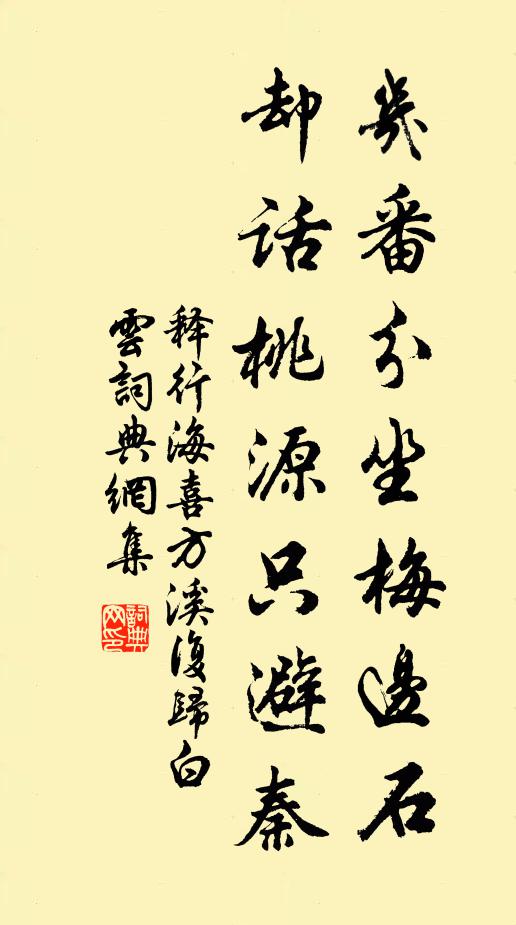 幾番分坐梅邊石
却话桃源只避秦
释行海喜方溪復歸白
雲詞典網集
詞典網印